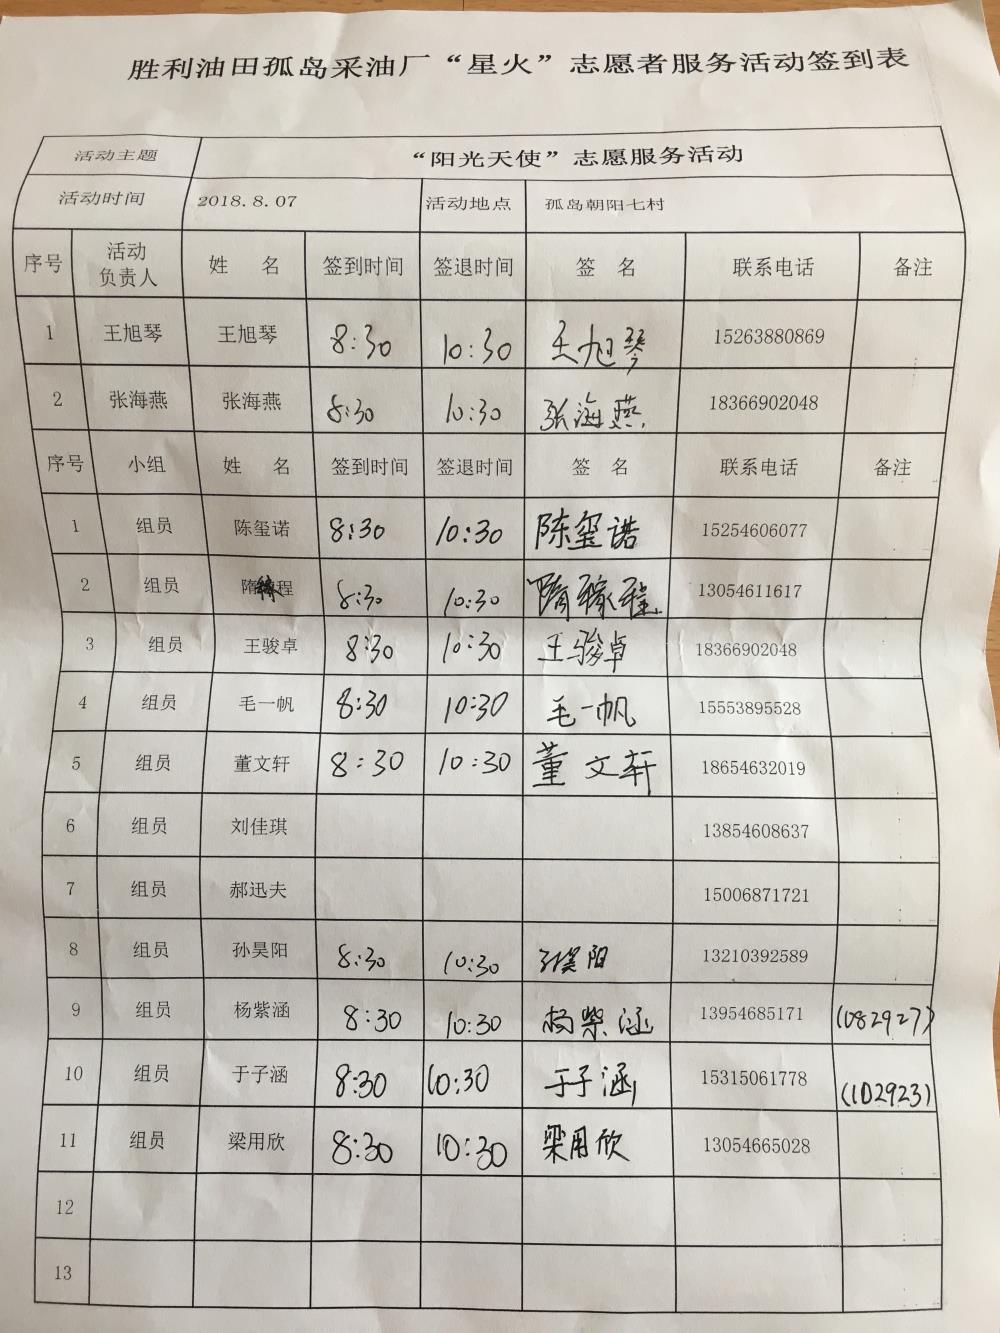 胜利油田孤岛采油厂“星火”志愿者服务活动签到表
活动主题 “阳光天使”志愿服务活动
活动时间 2018.8.07 活动地点 孤岛朝阳七村
序号 活动负责人 姓 名 签到时间 签退时间 签 名 联系电话 备注
1 王旭琴 王旭琴 8:30 10:30 王旭琴 15263880869
2 张海燕 张海燕 8:30 10:30 张海燕 18366902048
序号 小组 姓 名 签到时间 签退时间 签 名 联系电话 备注
1 组员 陈玺诺 8:30 10:30 陈玺诺 15254606077
2 组员 隋稼程 8:30 10:30 隋稼程 13054611617
3 组员 王骏卓 8:30 10:30 王骏卓 18366902048
4 组员 毛一帆 8:30 10:30 毛一帆 15553895528
5 组员 董文轩 8:30 10:30 董文轩 18654632019
6 组员 刘佳琪 13854608637
7 组员 郝迅夫 15006871721
8 组员 孙昊阳 8:30 10:30 孙昊阳 13210392589
9 组员 杨紫涵 8:30 10:30 杨紫涵 13954685171 (082927)
10 组员 于子涵 8:30 10:30 于子涵 15315061778 (102923)
11 组员 梁用欣 8:30 10:30 梁用欣 13054665028
12
13